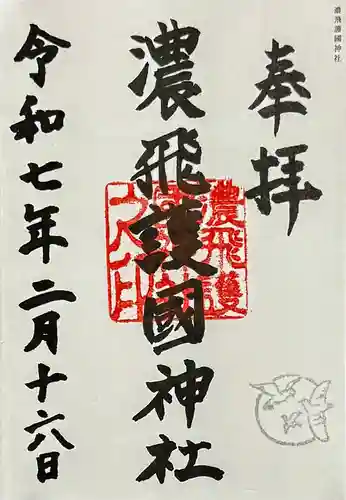 濃飛護國神社
奉拝
濃飛護國神社
濃飛護
令和七年二月十六日